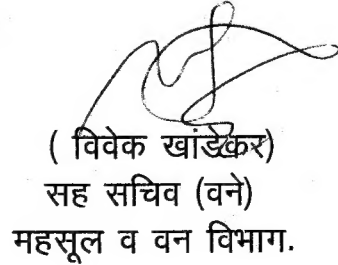 ( विवेक खांडेकर)
सह सचिव (वने)
महसूल व वन विभाग.